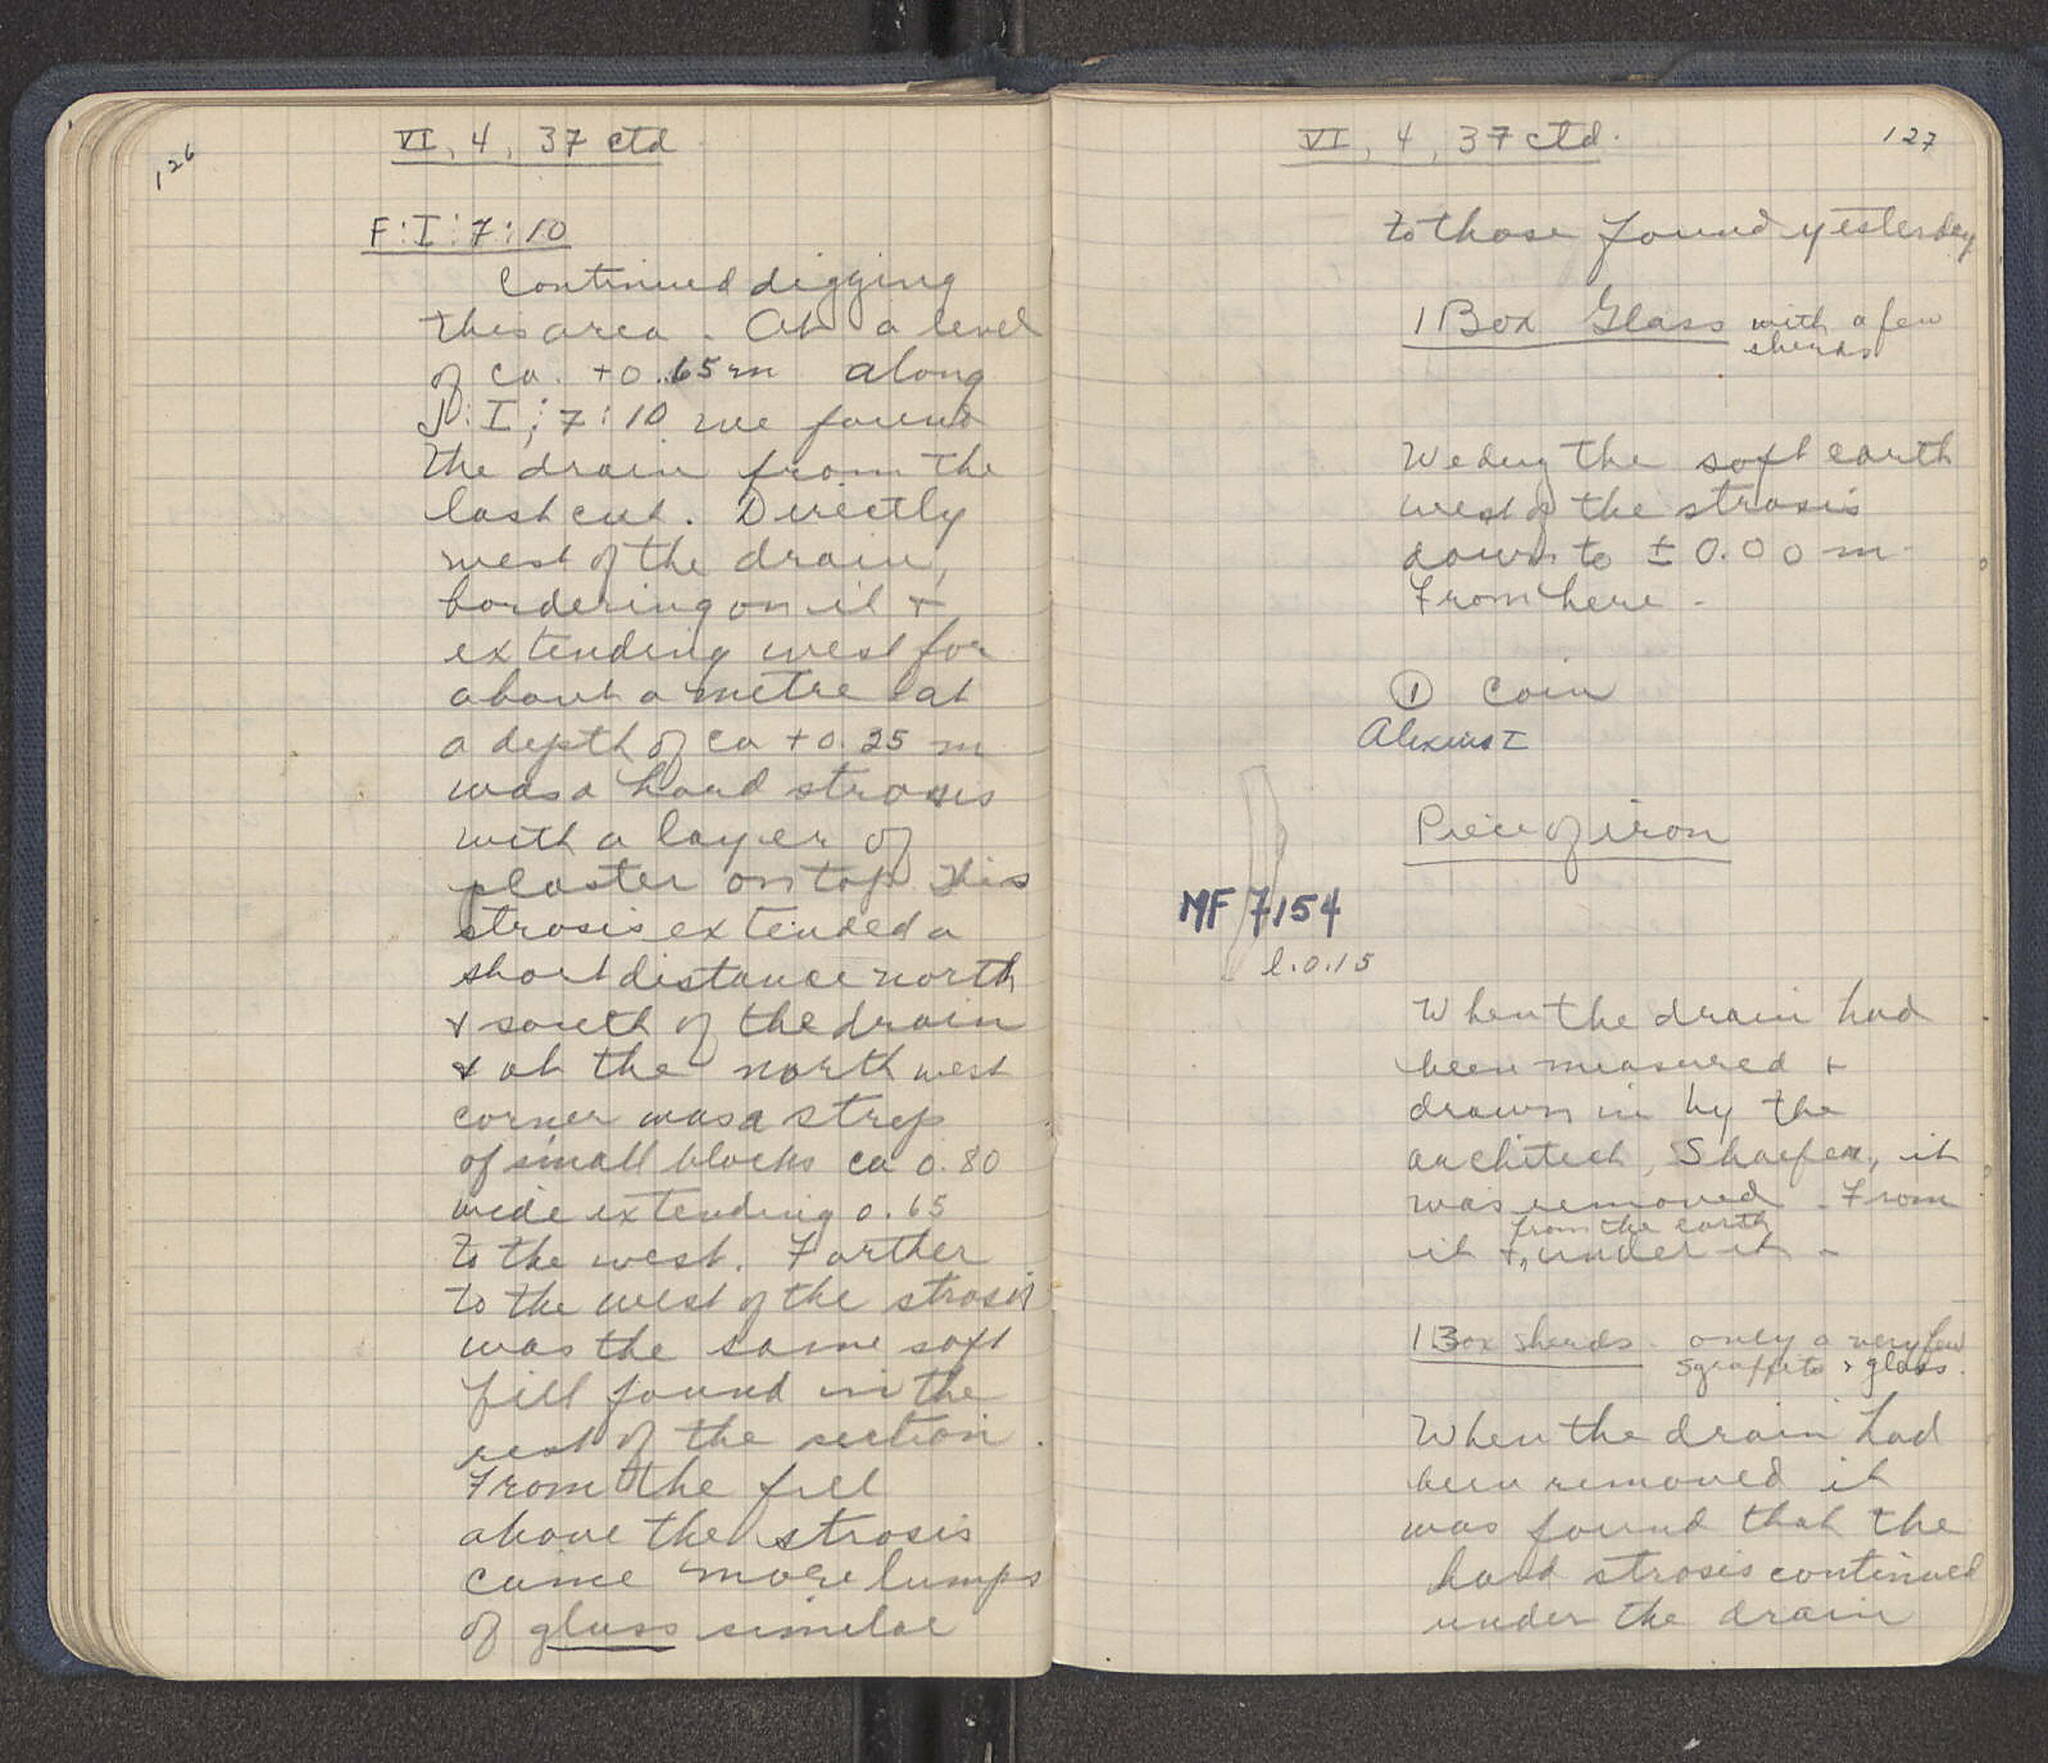 126
VI, 4, 37 ctd
F:I:7:10
Continued digging
this area. At a level
of ca. +0.65 m along
J:I:7:10 we found
the drain from the
last cut. Directly
west of the drain,
bordering on it +
extending west for
about a metre at
a depth of ca +0.25 m
was a hard strosis
with a layer of
plaster on top. This
strosis extended a
short distance north
+ south of the drain
+ at the north west
corner was a strep
of small blocks ca 0.80
wide extending 0.65
to the west. Farther
to the west of the strosis
was the same soft
fill found in the
rest of the section.
From the fill
above the strosis
came more lumps
of glass similar
VI, 4, 37 ctd.
127
to those found yesterday
1 Box Glass with a few
sherds
We dug the soft earth
west of the strosis
down to ± 0.00 m.
From here -
① Coin
Alexius I
Piece of iron
MF 7154
l. 0.15
When the drain had
been measured +
drawn in by the
architect, Shaefer, it
was removed. From
from the earth
it +, under it -
1 Box sherds - only a very few
sgraffito + glass.
When the drain had
been removed it
was found that the
hard strosis continued
under the drain